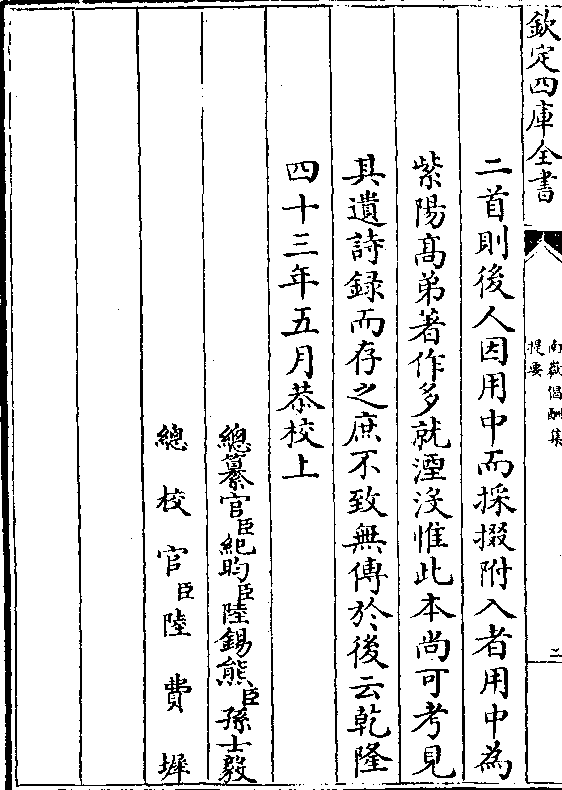 欽定四庫全書
南嶽倡酬集
提要
二
二首則後人因用中而採掇附入者用中為
紫陽髙弟著作多就湮沒惟此本尚可考見
其遺詩録而存之庶不致無傳於後云乾隆
四十三年五月恭校上
總纂官臣紀昀臣陸錫熊臣孫士毅
總校官臣陸費墀